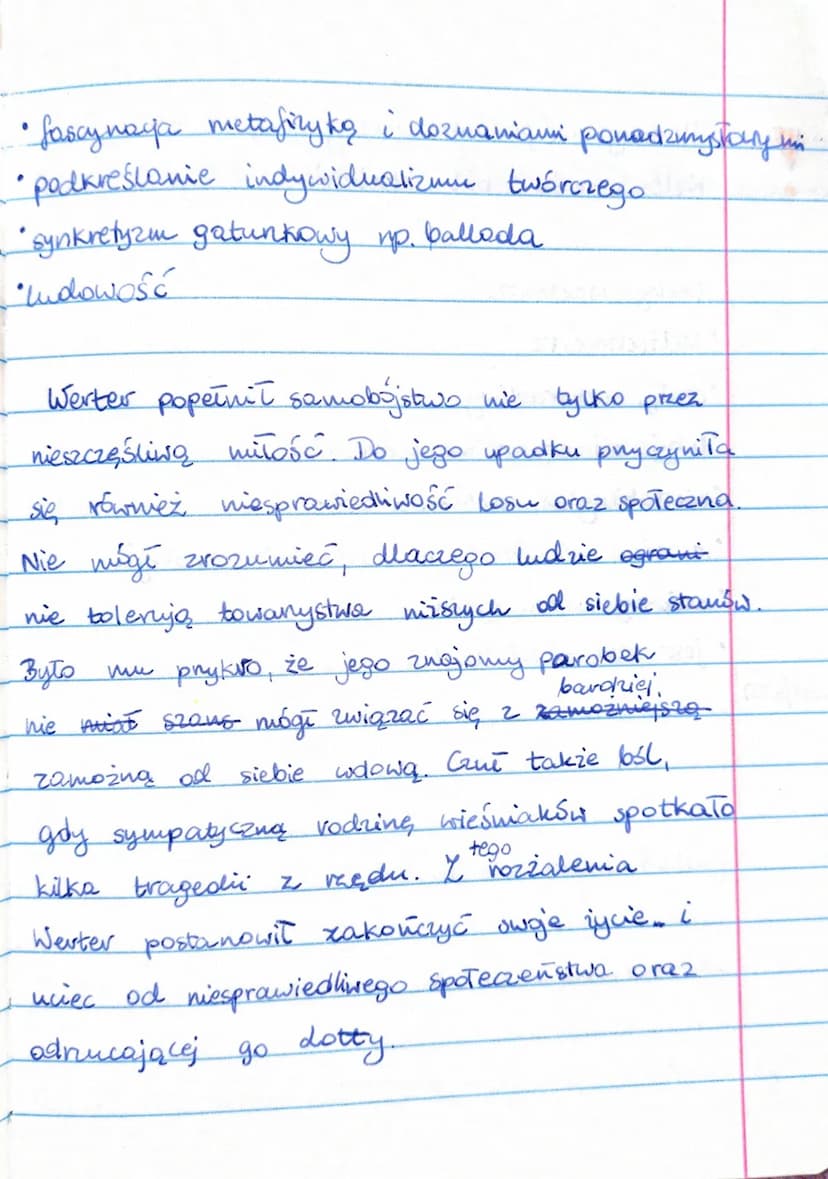 • fascynacja metafizyką i doznaniami ponadzmysłowymi
• podkreślanie indywidualizmu twórczego
• synkretyzm gatunkowy np. ballada
• ludowość
Werter popełnił samobójstwo nie tylko przez
nieszczęśliwą miłość. Do jego upadku przyczyniła
się również niesprawiedliwość losu oraz społeczna.
Nie mógł zrozumieć, dlaczego ludzie ograni
nie tolerują towarzystwa niższych od siebie stanów.
Było mu przykro, że jego znajomy parobek
bardziej
nie miał szans mógł związać się z zamożniejszą
zamożną od siebie wdową. Czuł także ból,
gdy sympatyczną rodzinę wieśniaków spotkało
kilka tragedii z rzędu. Z tego rozżalenia
Werter postanowił zakończyć swoje życie i
uciec od niesprawiedliwego społeczeństwa oraz
odrzucającej go Lotty.